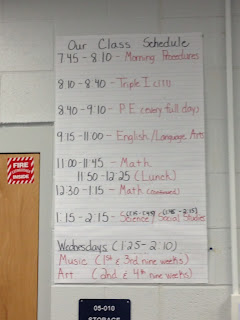 Our Class Schedule
7:45 - 8:10 - Morning Procedures
8:10 - 8:40 - Triple I (III)
8:40 - 9:10 - P.E. (every full day)
9:15 - 11:00 - English / Language Arts
11:00 - 11:45 - Math
11:50 - 12:25 (Lunch)
12:30 - 1:15 - Math (continued)
(1:15 - 1:45) (1:45 - 2:15)
1:15 - 2:15 - Science / Social Studies
Wednesdays (1:25 - 2:10)
Music (1st & 3rd nine weeks)
Art (2nd & 4th nine weeks)
FIRE
INSIDE
05-010
STORAGE